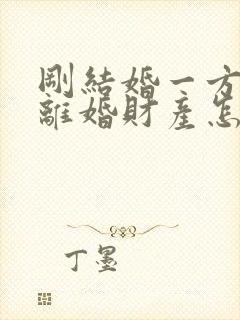 剛結婚一方
離婚財產怎
丁墨